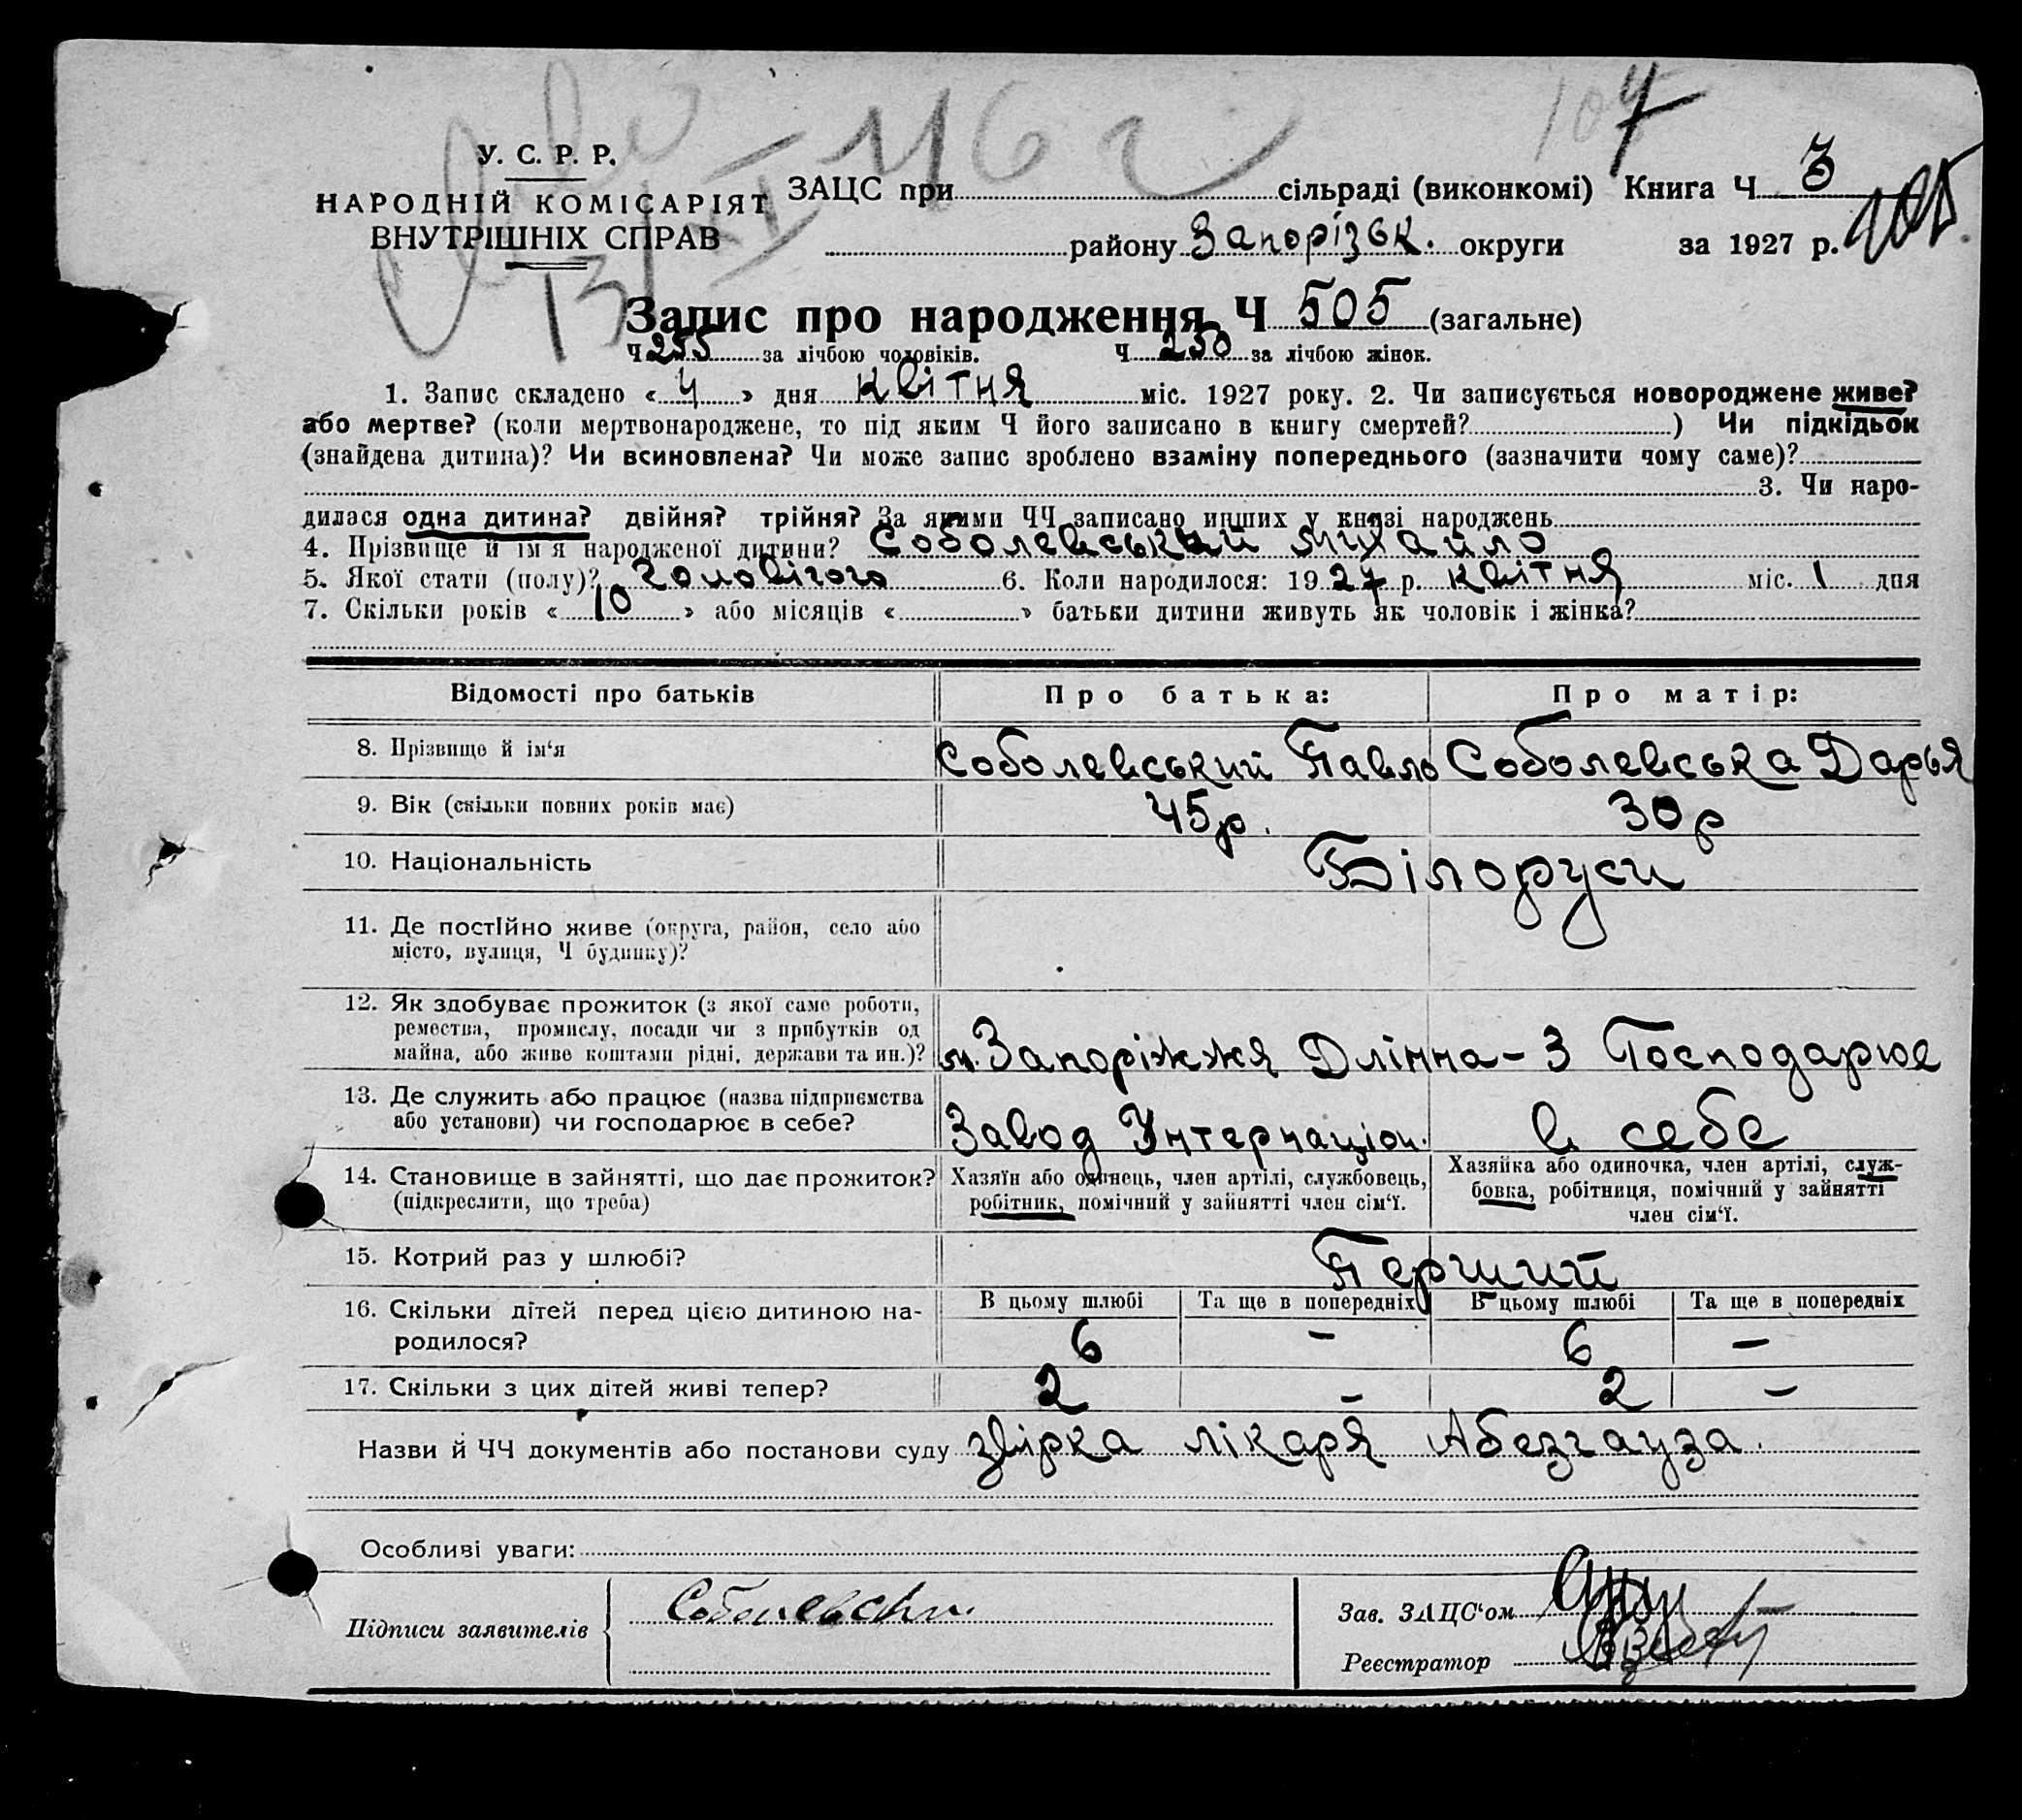 116 г
107
У. С. Р. Р.
НАРОДНІЙ КОМІСАРІЯТ
ВНУТРІШНІХ СПРАВ
ЗАЦС при сільраді (виконкомі) Книга Ч 3
району Запорізьк. округи за 1927 р.
Запис про народження Ч 505 (загальне)
Ч 255 за лічбою чоловіків. Ч 250 за лічбою жінок.
1. Запис складено « 4 » дня квітня міс. 1927 року. 2. Чи записується новороджене живе?
або мертве? (коли мертвонароджене, то під яким Ч його записано в книгу смертей? ) Чи підкідьок
(знайдена дитина)? Чи всиновлена? Чи може запис зроблено взаміну попереднього (зазначити чому саме)?
3. Чи наро-
дилася одна дитина? двійня? трійня? За якими ЧЧ записано инших у книзі народжень
4. Прізвище й ім'я народженої дитини? Соболевський Михайло
5. Якої стати (полу)? Чоловічого 6. Коли народилося: 1927 р. квітня міс. 1 дня
7. Скільки років « 10 » або місяців « » батьки дитини живуть як чоловік і жінка?
Відомості про батьків Про батька: Про матір:
8. Прізвище й ім'я Соболевський Павло Соболевська Дарья
9. Вік (скільки повних років має) 45 р. 30 р
10. Національність Білоруси
11. Де постійно живе (округа, район, село або
місто, вулиця, Ч будинку)?
12. Як здобуває прожиток (з якої саме роботи,
ремества, промислу, посади чи з прибутків од
майна, або живе коштами рідні, держави та ин.)? м. Запоріжжя Длінна - 3 Господарює
13. Де служить або працює (назва підприємства
або установи) чи господарює в себе? Завод Інтернаціон. в себе
14. Становище в зайнятті, що дає прожиток?
(підкреслити, що треба)
Хазяїн або одинець, член артілі, службовець,
робітник, помічний у зайнятті член сім'ї.
Хазяйка або одиночка, член артілі, служ-
бовка, робітниця, помічний у зайнятті
член сім'ї.
15. Котрий раз у шлюбі? Перший
16. Скільки дітей перед цією дитиною на-
родилося?
В цьому шлюбі Та ще в попередніх В цьому шлюбі Та ще в попередніх
6 - 6 -
17. Скільки з цих дітей живі тепер? 2 - 2 -
Назви й ЧЧ документів або постанови суду звірка лікаря Абезгауза.
Особливі уваги:
Підписи заявителів Соболевски
Зав. ЗАЦС'ом
Реєстратор